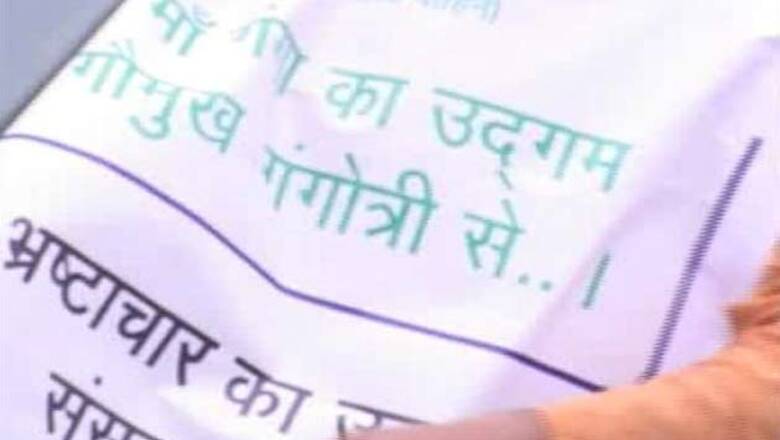 माँ का उद्गम
गौमुख गंगोत्री से.. ।
भ्रष्टाचार का